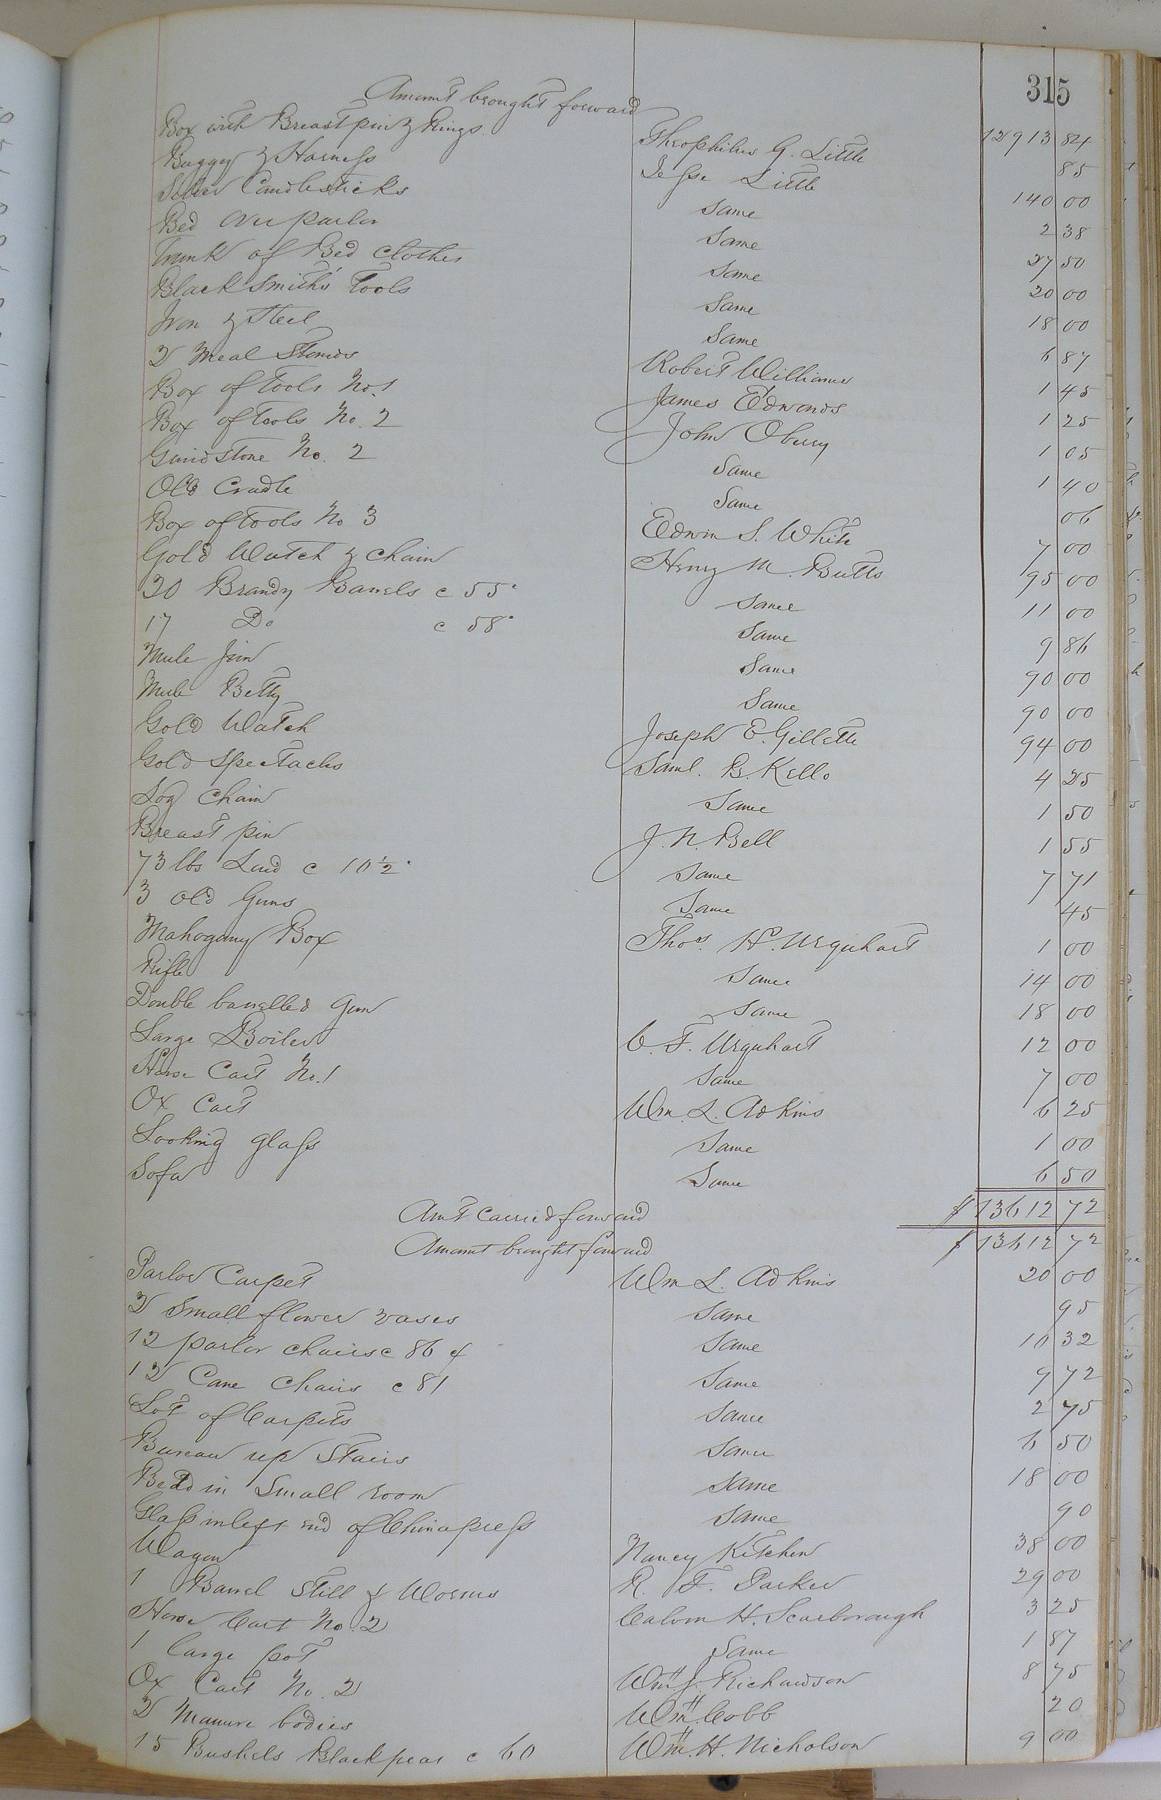 315
Amount brought forward 12913 84
Box with Breastpin & Rings Theophilus G. Little 85
Buggy & Harness Jesse Little 140 00
Silver Candlesticks Same 2 38
Bed over parlor Same 27 50
Trunk of Bed clothes Same 20 00
Blacksmith's Tools Same 18 00
Iron & Steel Same 6 87
2 Meal Stands Robert Williams 1 45
Box of tools No. 1 James Edwards 1 25
Box of tools No. 2 John Obery 1 05
Grindstone No. 2 Same 1 40
Old Cradle Same 06
Box of tools No 3 Edwin S. White 7 00
Gold Watch & chain Henry M. Butts 95 00
20 Brandy Barrels c 55 Same 11 00
17 Do c 58 Same 9 86
Mule Jim Same 90 00
Mule Betty Same 90 00
Gold Watch Joseph E. Gillette 94 00
Gold spectacles Saml. B. Kello 4 25
Log chain Same 1 50
Breast pin J. N. Bell 1 55
73 lbs Lard c 10½ Same 7 71
3 old Guns Same 45
Mahogany Box Thos. H. Urquhart 1 00
Rifle Same 14 00
Double barrelled Gun Same 18 00
Large Boiler C. F. Urquhart 12 00
Horse Cart No. 1 Same 7 00
Ox Cart Wm. L. Adkins 6 25
Looking glass Same 1 00
Sofa Same 6 50
Amt Carried forward $ 13612 72
Amount brought forward $ 13612 72
Parlor Carpet Wm L. Adkins 20 00
2 Small flower vases Same 95
12 parlor chairs c 86 ¢ Same 10 32
12 Cane chairs c 81 Same 9 72
Lot of Carpets Same 2 75
Bureau up Stairs Same 6 50
Bed in Small room Same 18 00
Glass in left end of China press Same 90
Wagon Nancy Kitchen 38 00
1 Barrel Still & Worms R. F. Parker 29 00
Horse Cart No. 2 Calvin H. Scarborough 3 25
1 large pot Same 1 87
Ox Cart No. 2 Wm J. Richardson 8 75
2 Manure bodies Wm Cobb 20
15 Bushels Black peas c 60 Wm. H. Nicholson 9 00